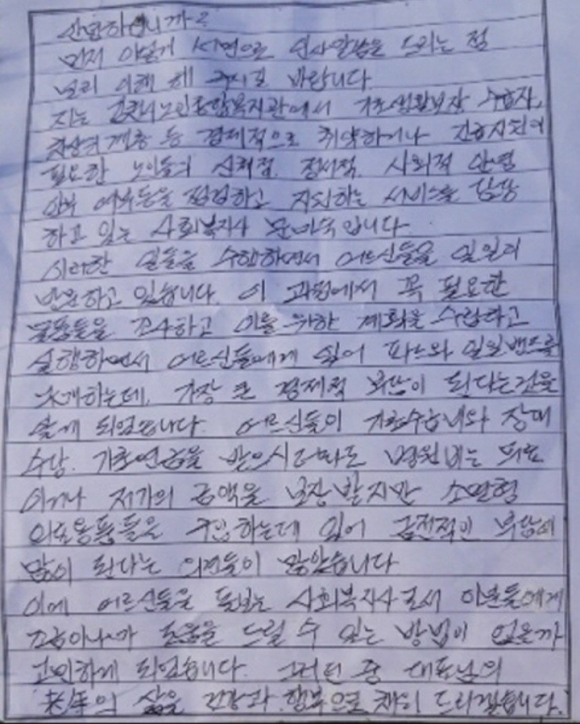 안녕하십니까?
먼저 이렇게 서면으로 인사말씀을 드리는 점
널리 이해 해 주시길 바랍니다
저는 노인종합복지관에서 기초생활보장 수급자,
차상위계층 등 경제적으로 취약하거나 긴급지원이
필요한 노인들의 신체적, 정서적, 사회적 안전
안부 여부등을 점검하고 지원하는 서비스를 담당
하고 있는 사회복지사 입니다
이러한 일들을 수행하면서 어르신들을 일일이
방문하고 있습니다. 이 과정에서 꼭 필요한
물품들을 조사하고 이를 위한 계획을 수립하고
실행하면서 어르신들에게 있어 파스와 일회밴드를
경제적 부담이 된다는것을
알게 되었습니다. 어르신들이 기초수급비와 장애
수당, 기초연금을 받으시더라도 병원비는 무료
이거나 저가의 금액을 보장받지만 소모형
의료용품들을 구입하는데 있어 금전적인 부담이
많이 된다는 의견들이 많았습니다
이에 어르신들을 돌보는 사회복지사로서 이분들에게
조금이나마 도움을 드릴 수 있는 방법이 있을까
고민하게 되었습니다. 그러던 중 대표님의
삶을 건강과 행복으로 채워 드리겠습니다.